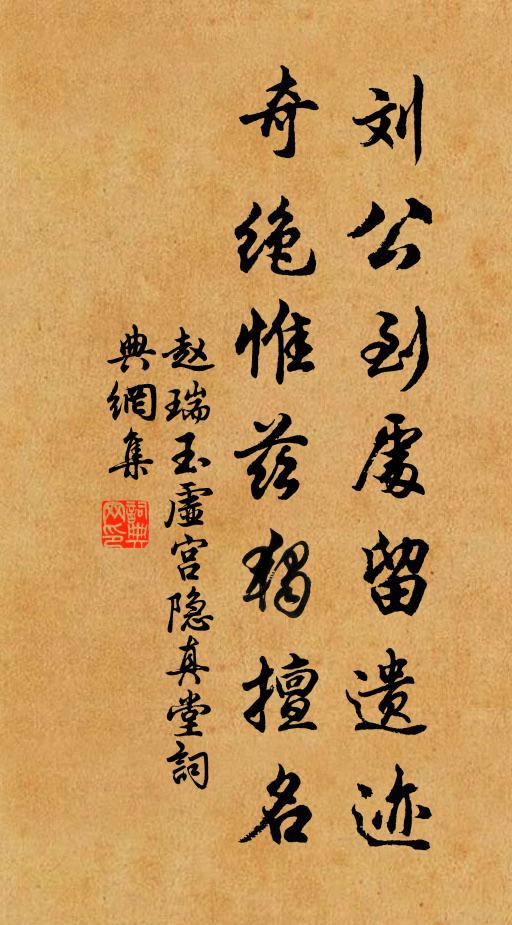 刘公到處留遗迹
奇绝惟兹獨擅名
赵瑞玉虚宫隐真堂詞
典網集
詞典
网印